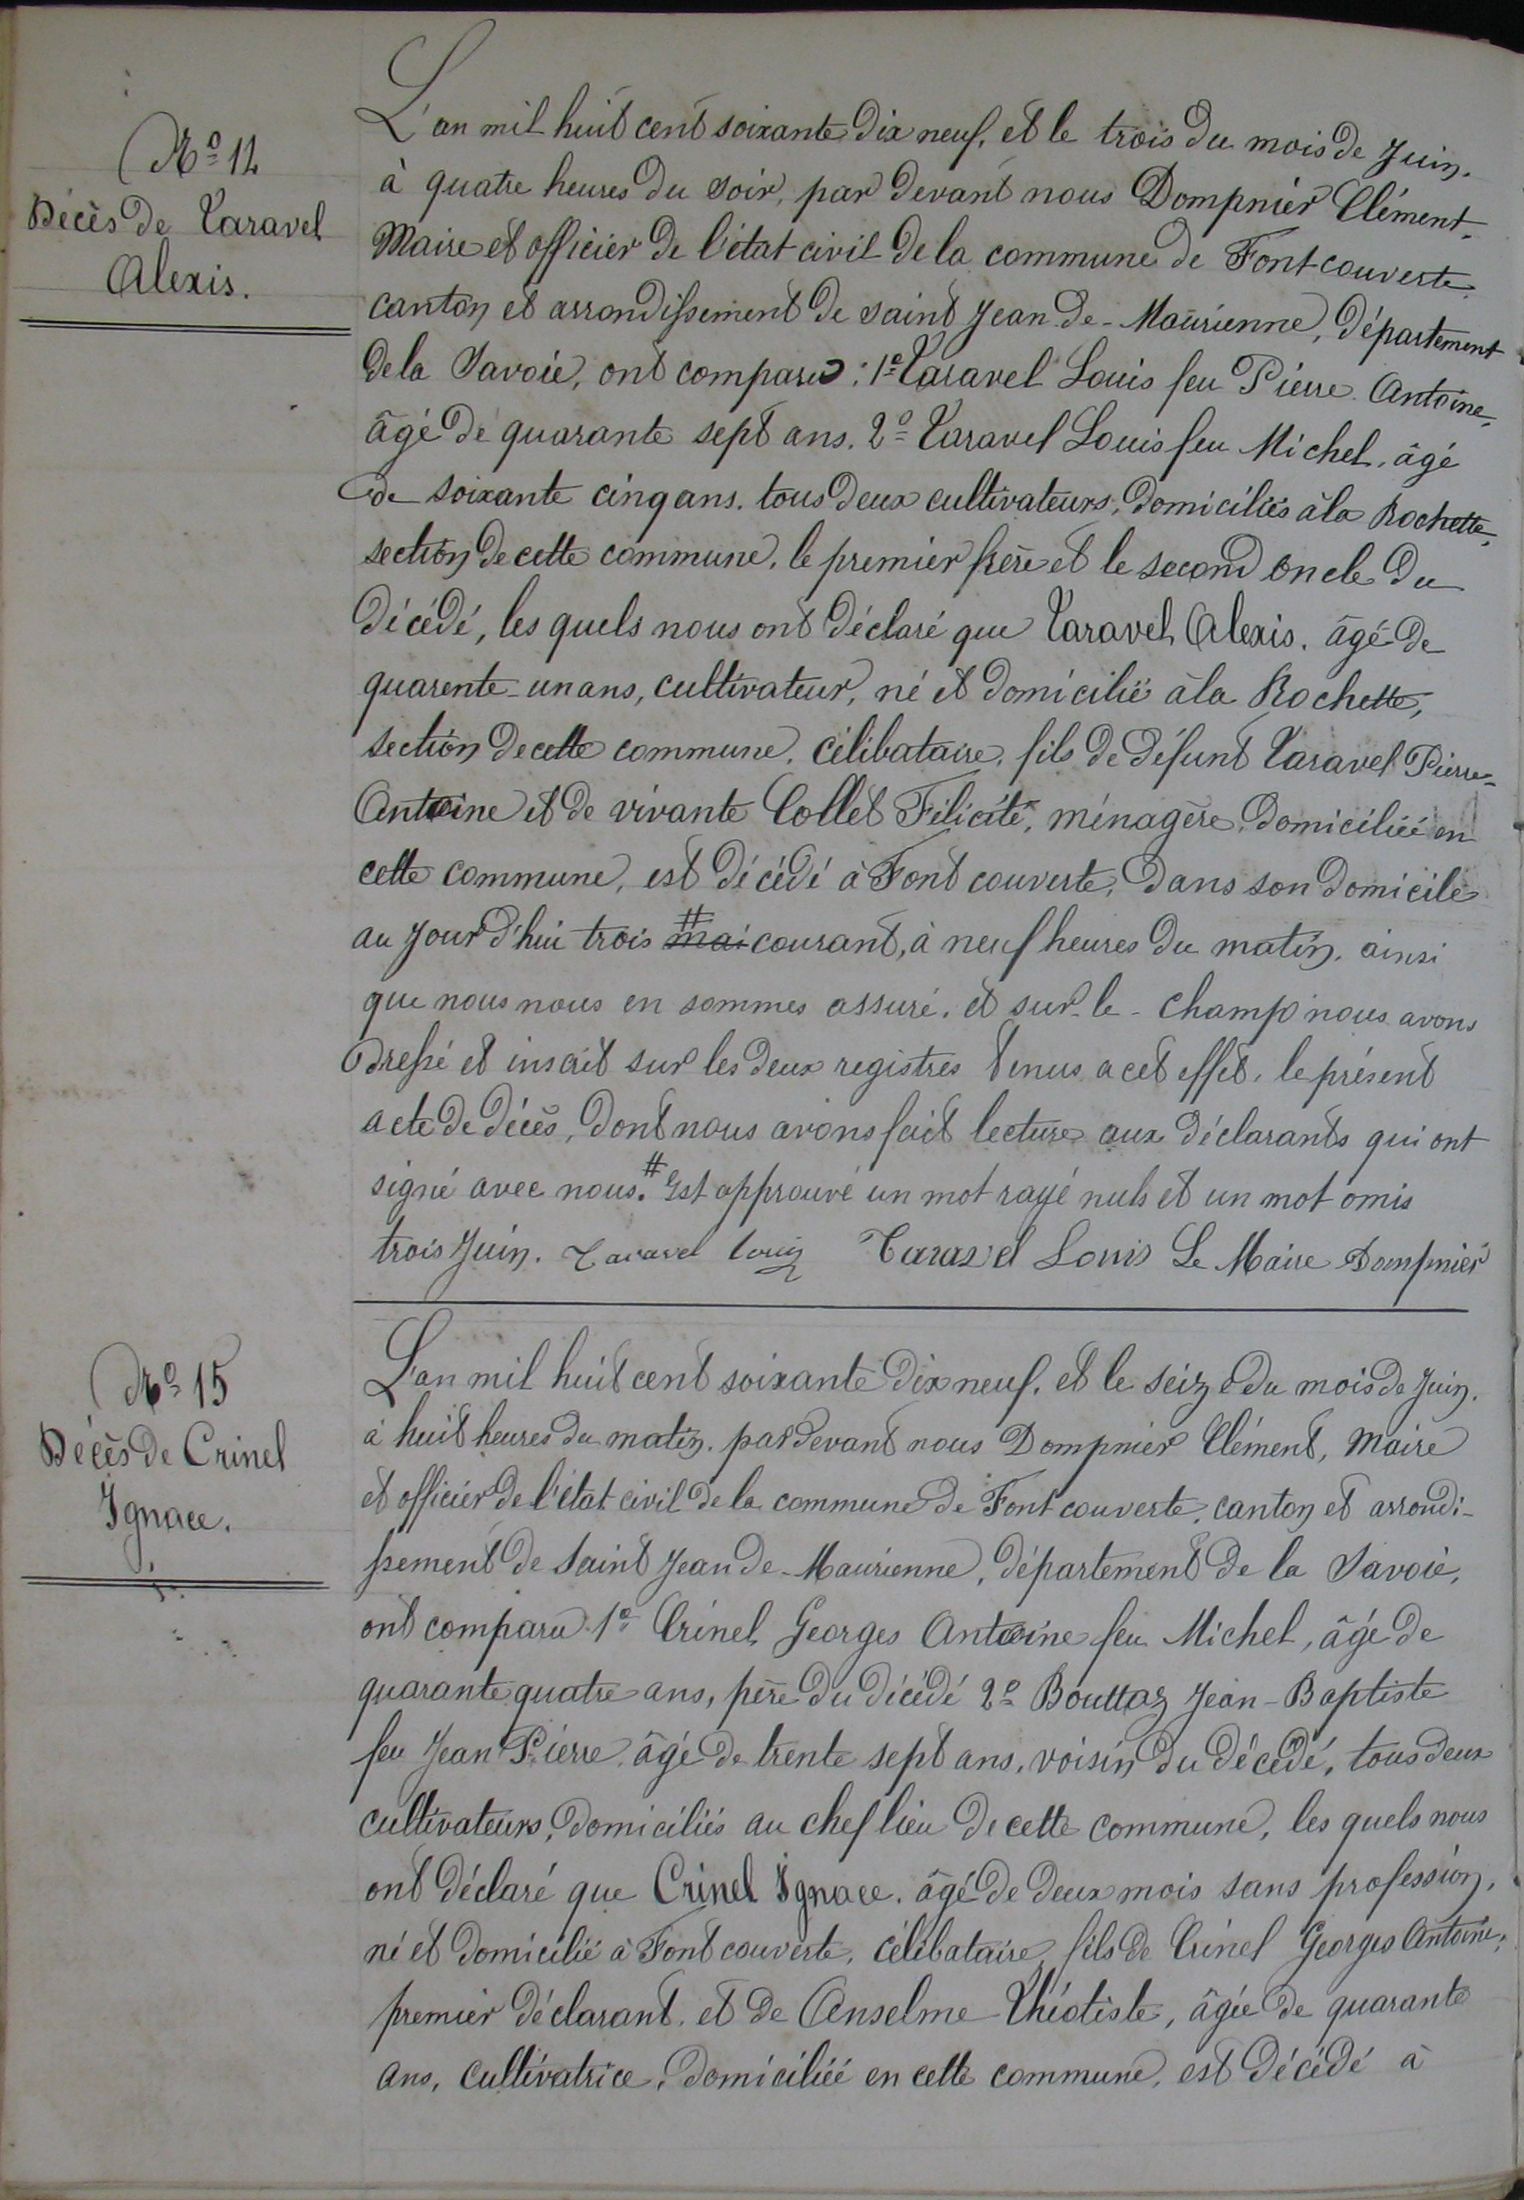 N° 14
Décès de Taravel
Alexis.
L'an mil huit cent soixante dix neuf, et le trois du mois de Juin.
à quatre heures du soir, par devant nous Dompnier Clément,
Maire et officier de l'état civil de la commune de Fontcouverte,
canton et arrondissement de saint Jean-de-Maurienne, département
de la Savoie, ont comparu : 1° Taravel Louis feu Pierre Antoine,
âgé de quarante sept ans. 2° Taravel Louis feu Michel, âgé
de soixante cinq ans. tous deux cultivateurs, domiciliés à la Rochette,
section de cette commune, le premier frère et le second oncle du
décédé, les quels nous ont déclaré que Taravel Alexis. âgé de
quarente-un ans, cultivateur, né et domicilié à la Rochette,
section de cette commune, célibataire, fils de défunt Taravel Pierre-
Antoine et de vivante Collet Félicité, ménagère, domiciliée en
cette commune, est décédé à Font couverte, dans son domicile
au jour d'hui trois # mai courant, à neuf heures du matin, ainsi
que nous nous en sommes assuré. et sur-le-champ nous avons
dressé et inscrit sur les deux registres tenus a cet effet, le présent
acte de décès, dont nous avons fait lecture aux déclarants qui ont
signé avec nous. # Est approuvé un mot rayé nuls et un mot omis
trois Juin. Taravel Louis Taravel Louis Le Maire Dompnier
N° 15
Décès de Crinel
Ignace.
L'an mil huit cent soixante dix neuf, et le seize du mois de Juin.
à huit heures du matin. par devant nous Dompnier Clément, Maire
et officier de l'état civil de la commune de Font couverte, canton et arrondi-
ssement de Saint Jean de-Maurienne, département de la Savoie,
ont comparu 1° Crinel Georges Antoine feu Michel, âgé de
quarante quatre ans, père du décédé 2° Bouttaz Jean-Baptiste
feu Jean Pierre, âgé de trente sept ans, voisin du décédé, tous deux
cultivateurs, domiciliés au chef lieu de cette commune, les quels nous
ont déclaré que Crinel Ignace. âgé de deux mois sans profession,
né et domicilié à Font couverte, célibataire, fils de Crinel Georges Antoine,
premier déclarant, et de Anselme Théotiste, âgée de quarante
ans, cultivatrice, domiciliée en cette commune, est décédé à